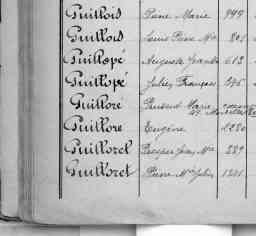 Guillois Pierre Marie 949
Guillois Louis Pierre Mie 821
Guillopé Auguste 613
Guillopé Jules François
Guilloré Marie
Guillore Eugène 1220
Guillorel Prosper Jean Mie 229
Guilloret Pierre Mie Julien 1211